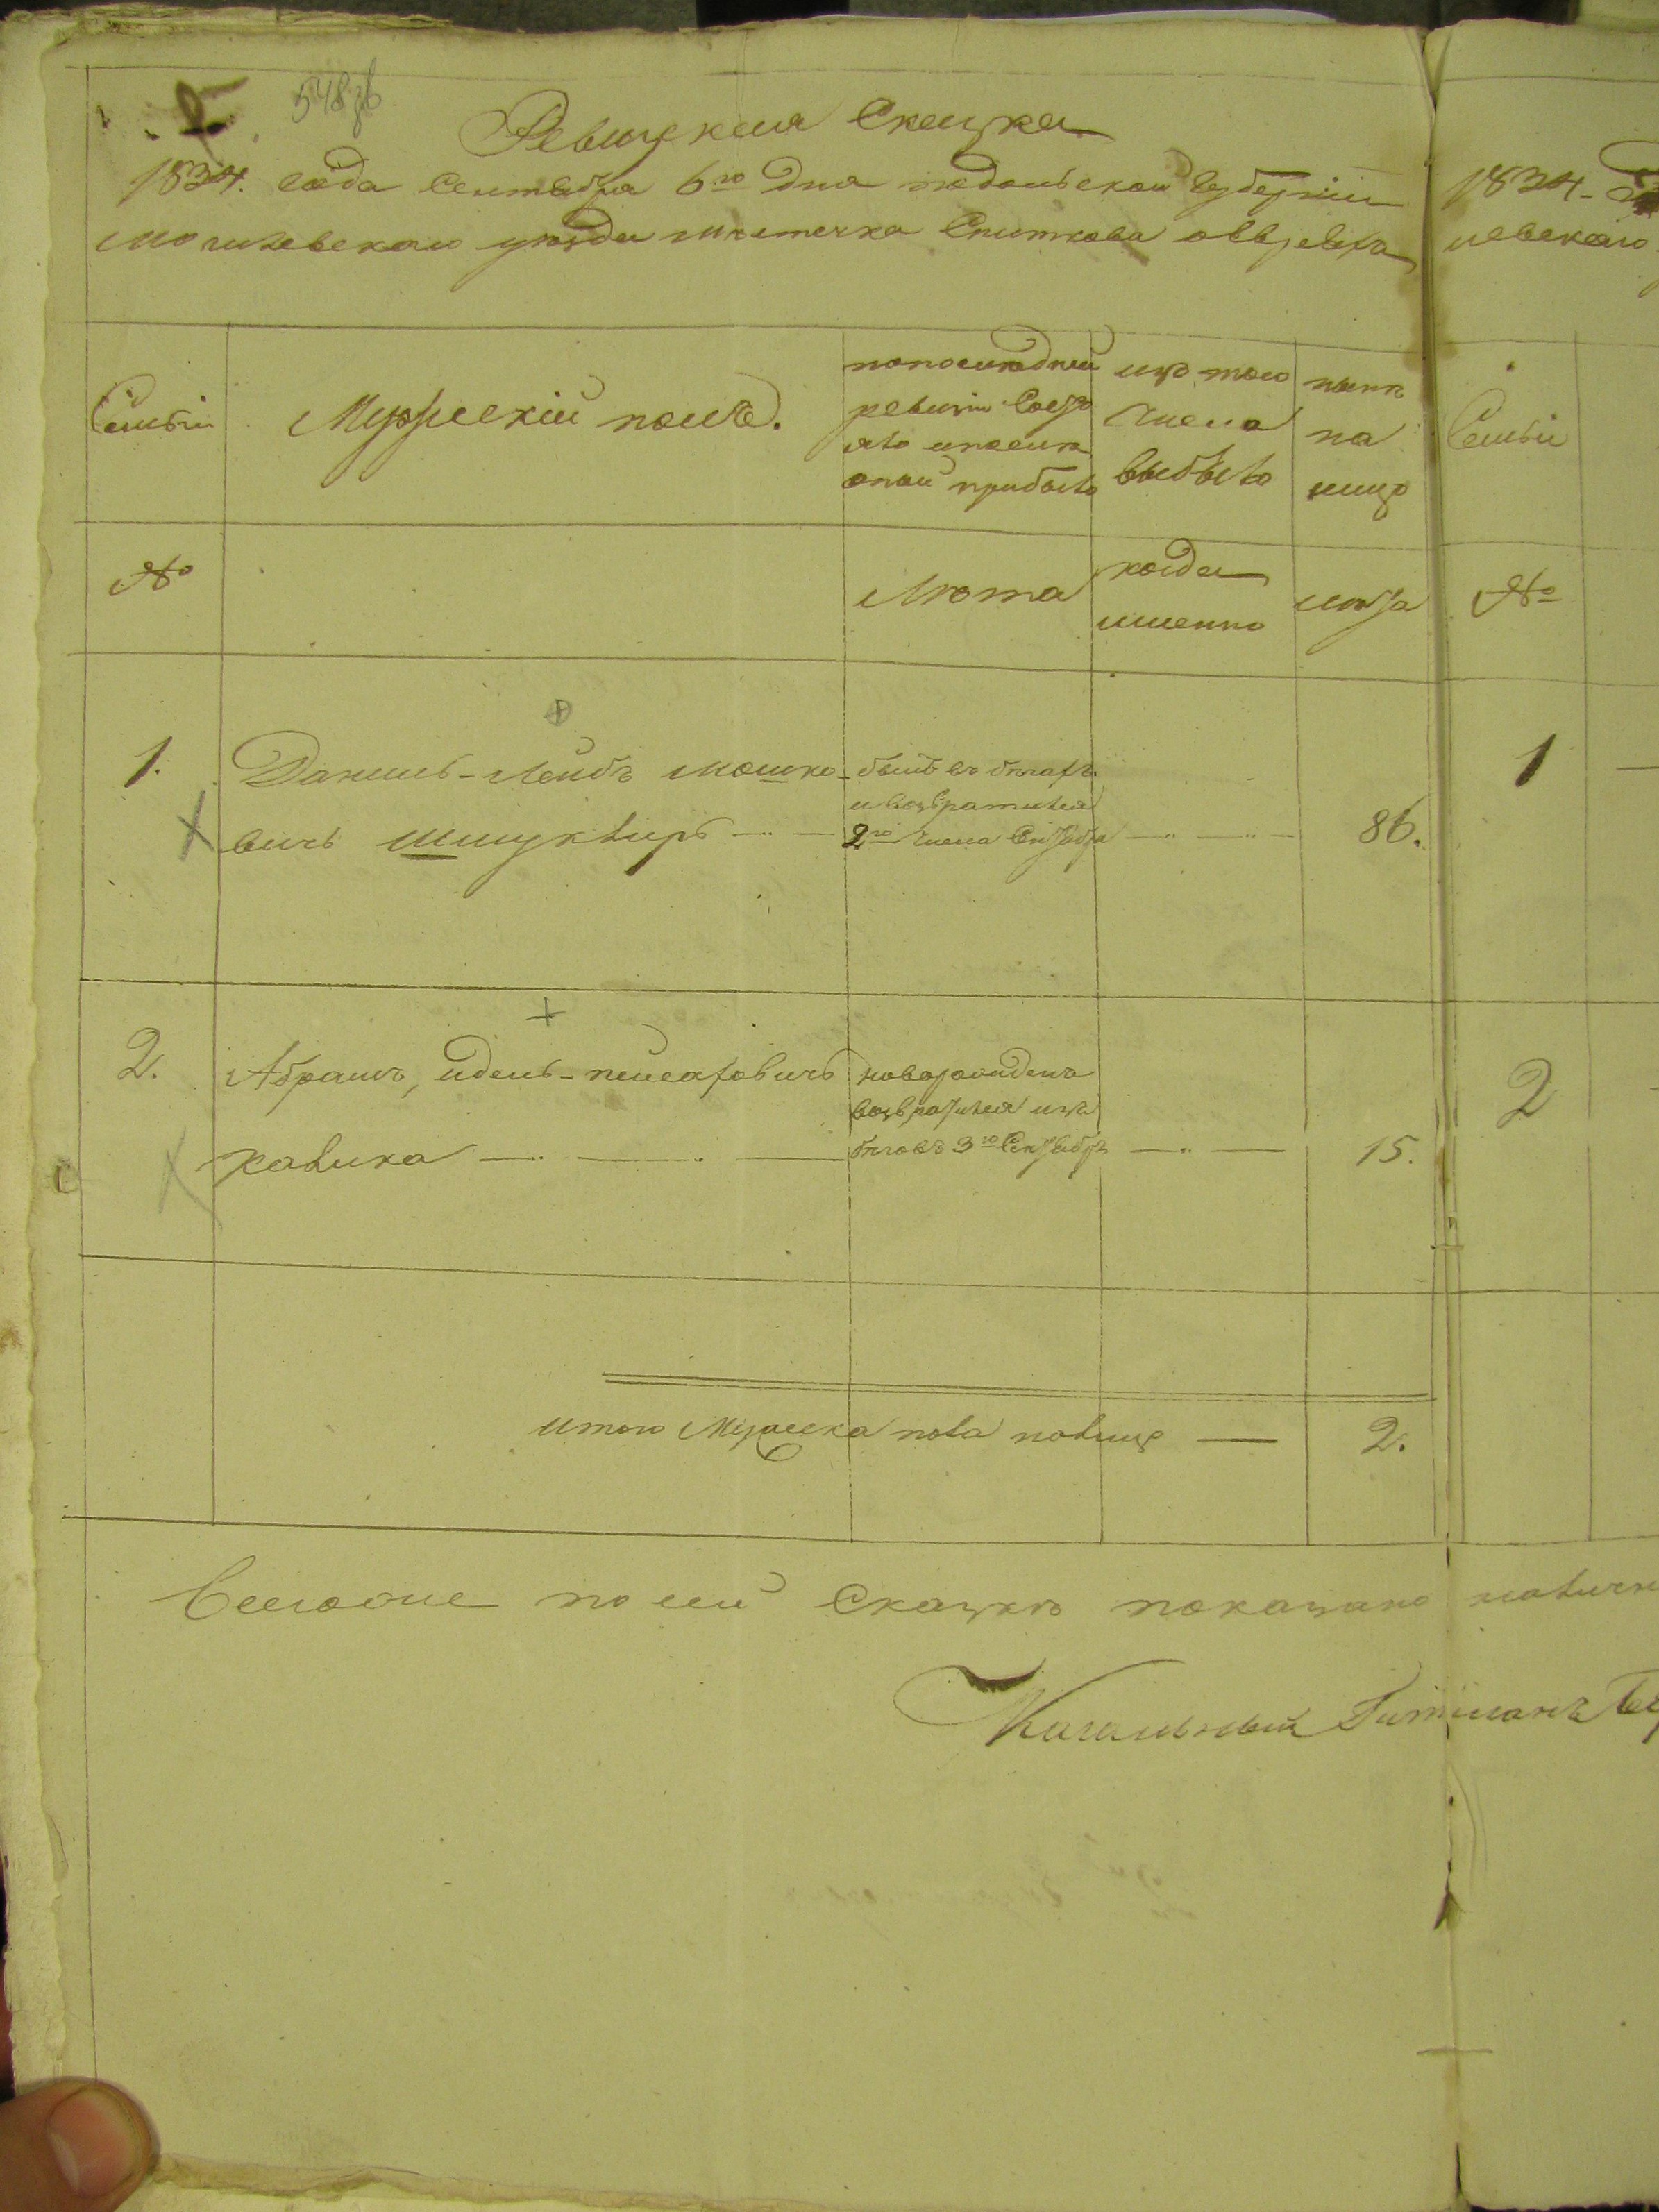 548 зв
Ревизская Сказка
1834. года Сентября 6го дня подольской губернии
могилевского уезда местечка Сниткова о евреяхъ
Семьи
Мужеский полъ.
по последней
ревизии Состо
яло и после
оной прибыло
изъ того
числа
выбыло
ныне
на
лицо
№
Лета
когда
именно
лета
1.
Даниль-Лейбъ Мошко-
вичь Шмуклиръ
былъ въ бегахъ
и возвратился
2го числа Сентября
86.
2.
Абрамъ, идель-пейсаховичь
калика
новорожденъ
возвратился изъ
беговъ 3го Сентября
15.
итого Мужеска пола налицо — 2.
Всего оне по сей Сказке показано налично
Кагальный Гитманъ
1834-
левского
Семьи
№
1
2